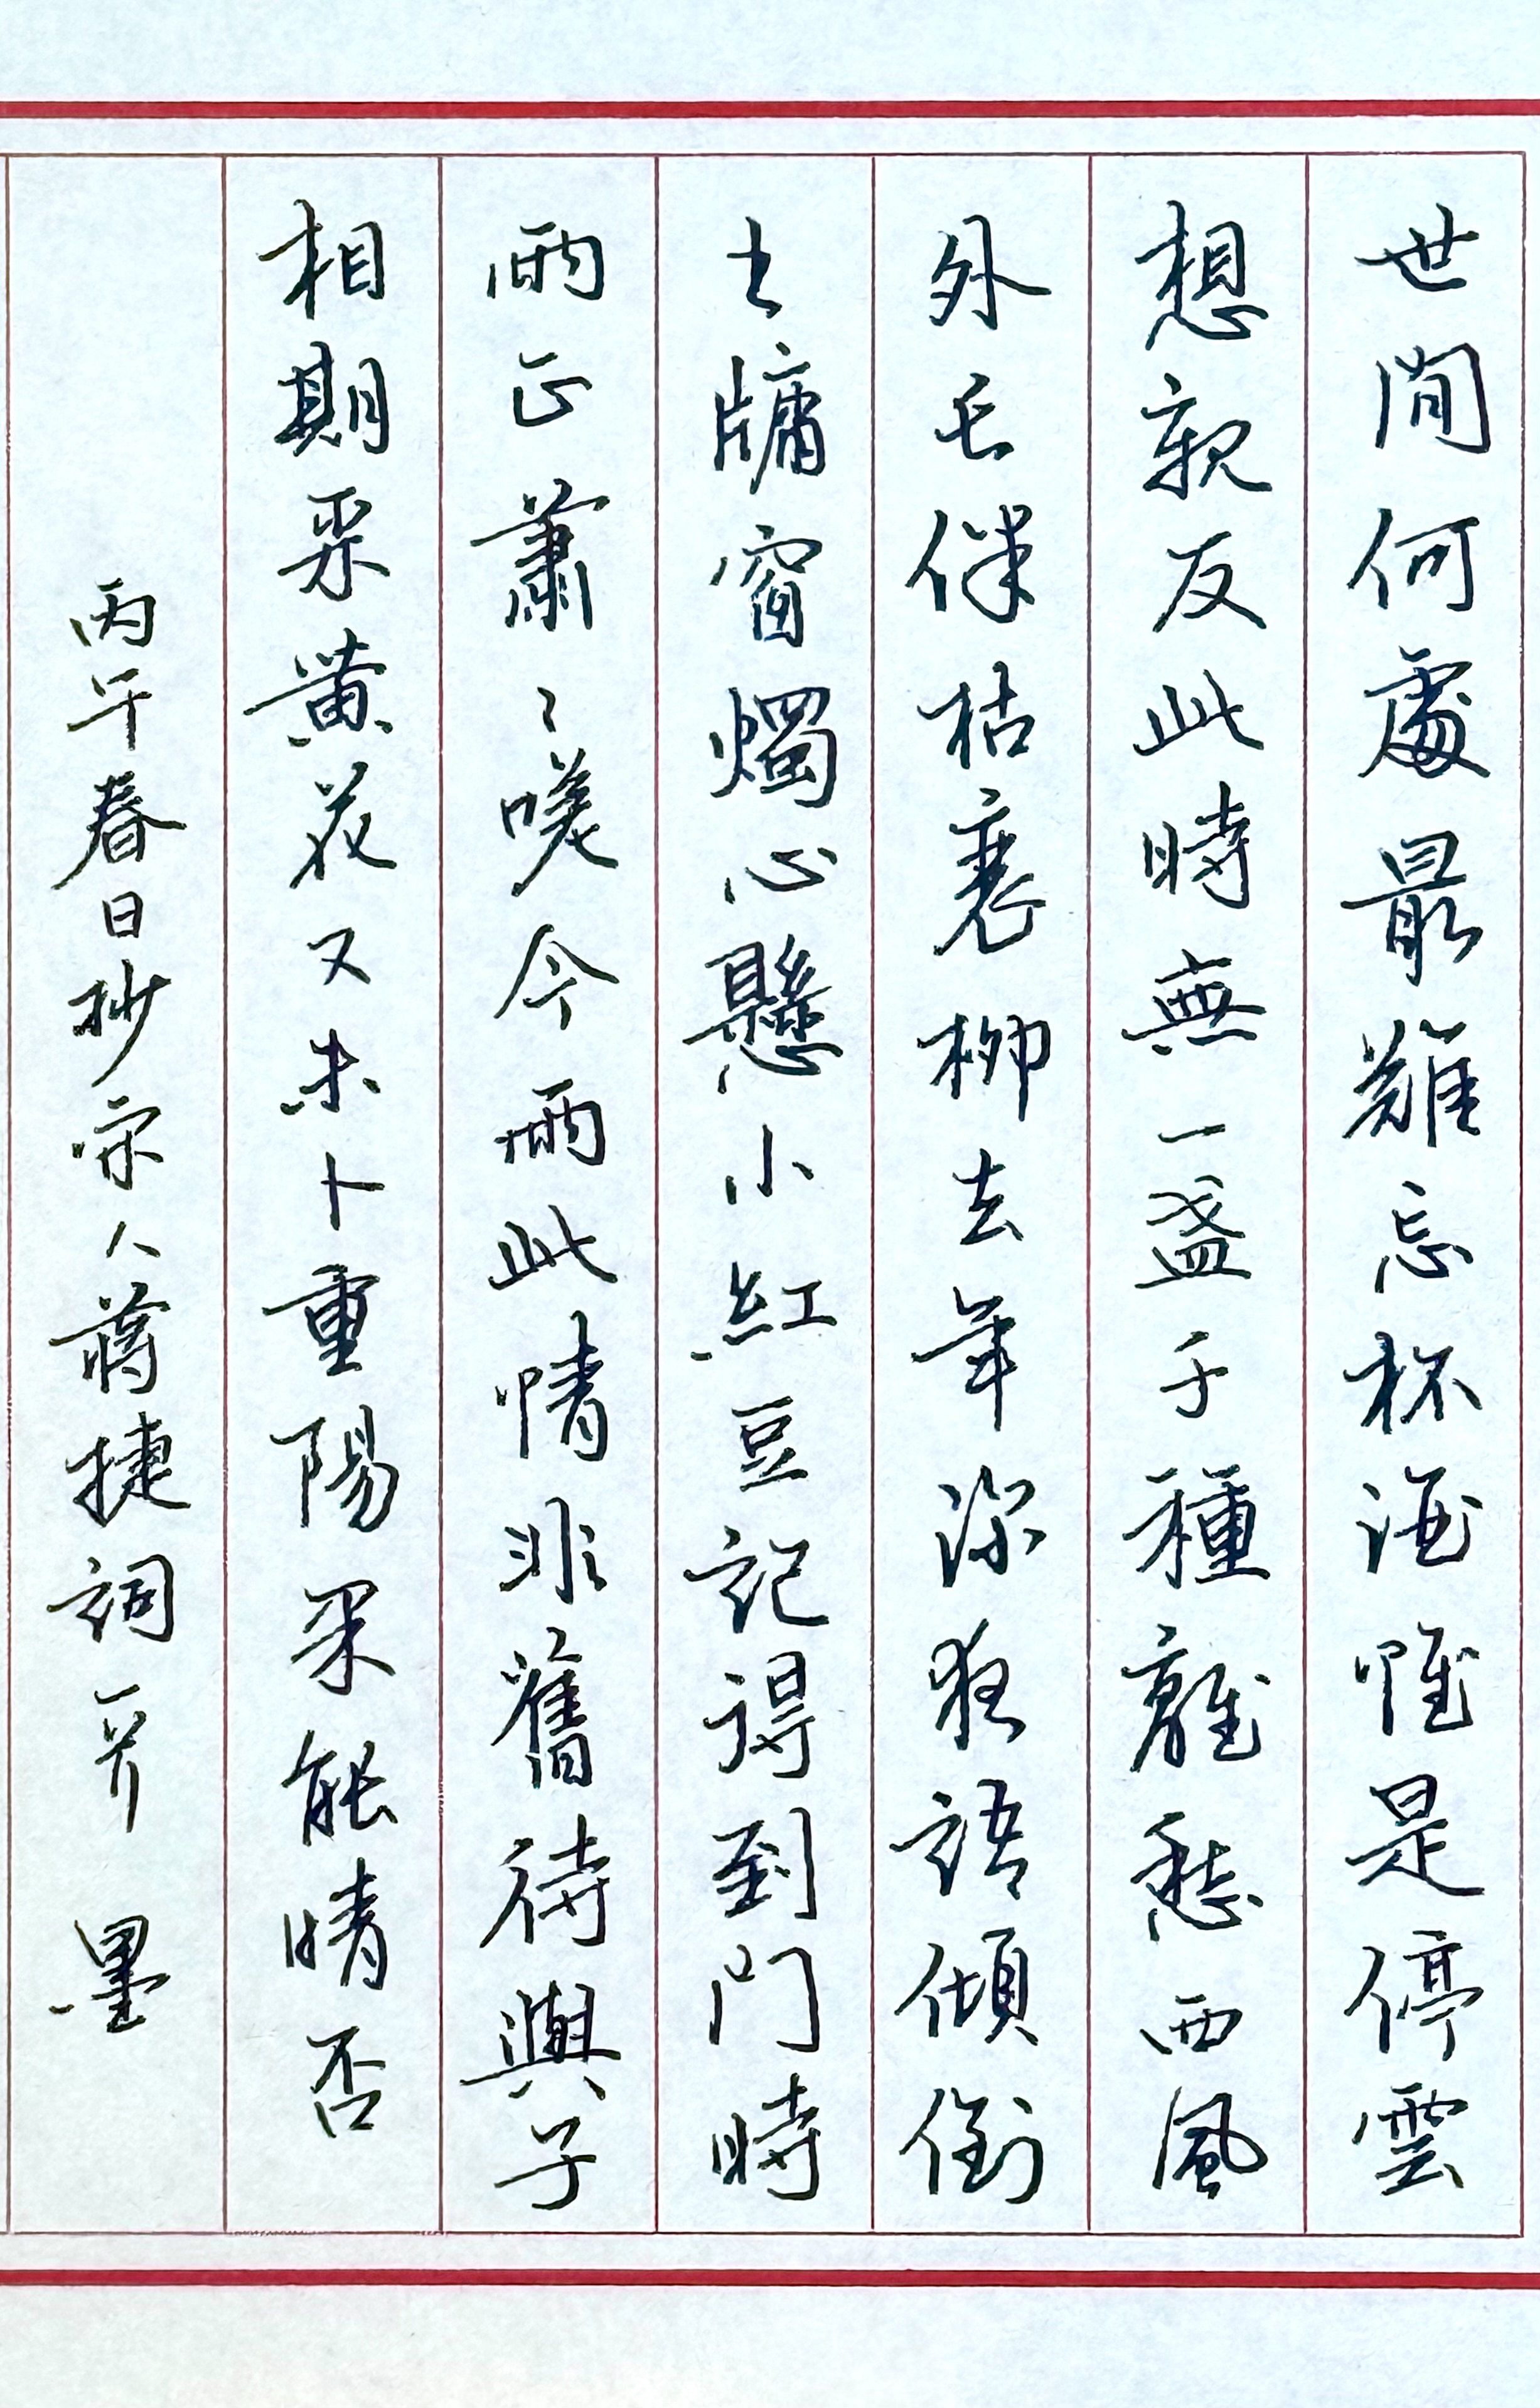 世間何處最難忘杯酒惟是停雲
想親友此時無一盞千種離愁西風
外長伴枯衰柳去年深夜語傾倒
書牖窗燭心懸小紅豆記得到門時
雨正蕭〻嘆今雨此情非舊待與子
相期采黃花又未卜重陽果能晴否
丙午春日抄宋人蔣捷詞一芥 墨